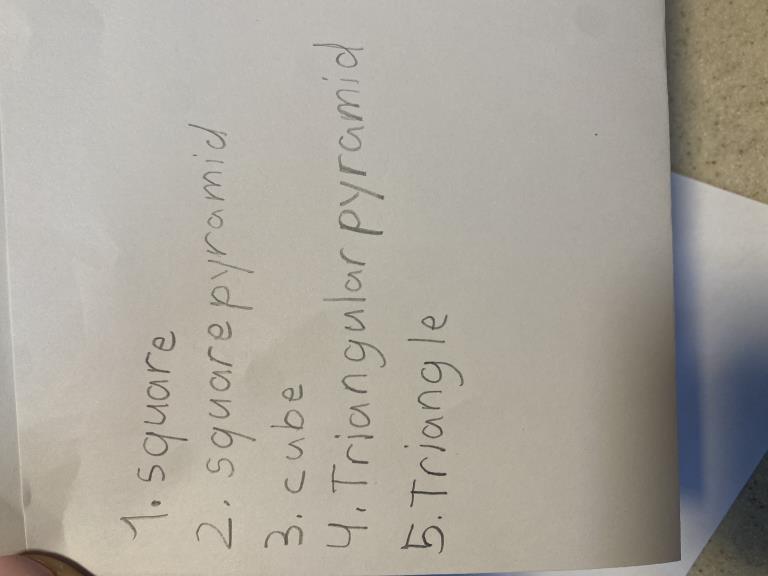 1. square
2. square pyramid
3. cube
4. Triangular pyramid
5. Triangle